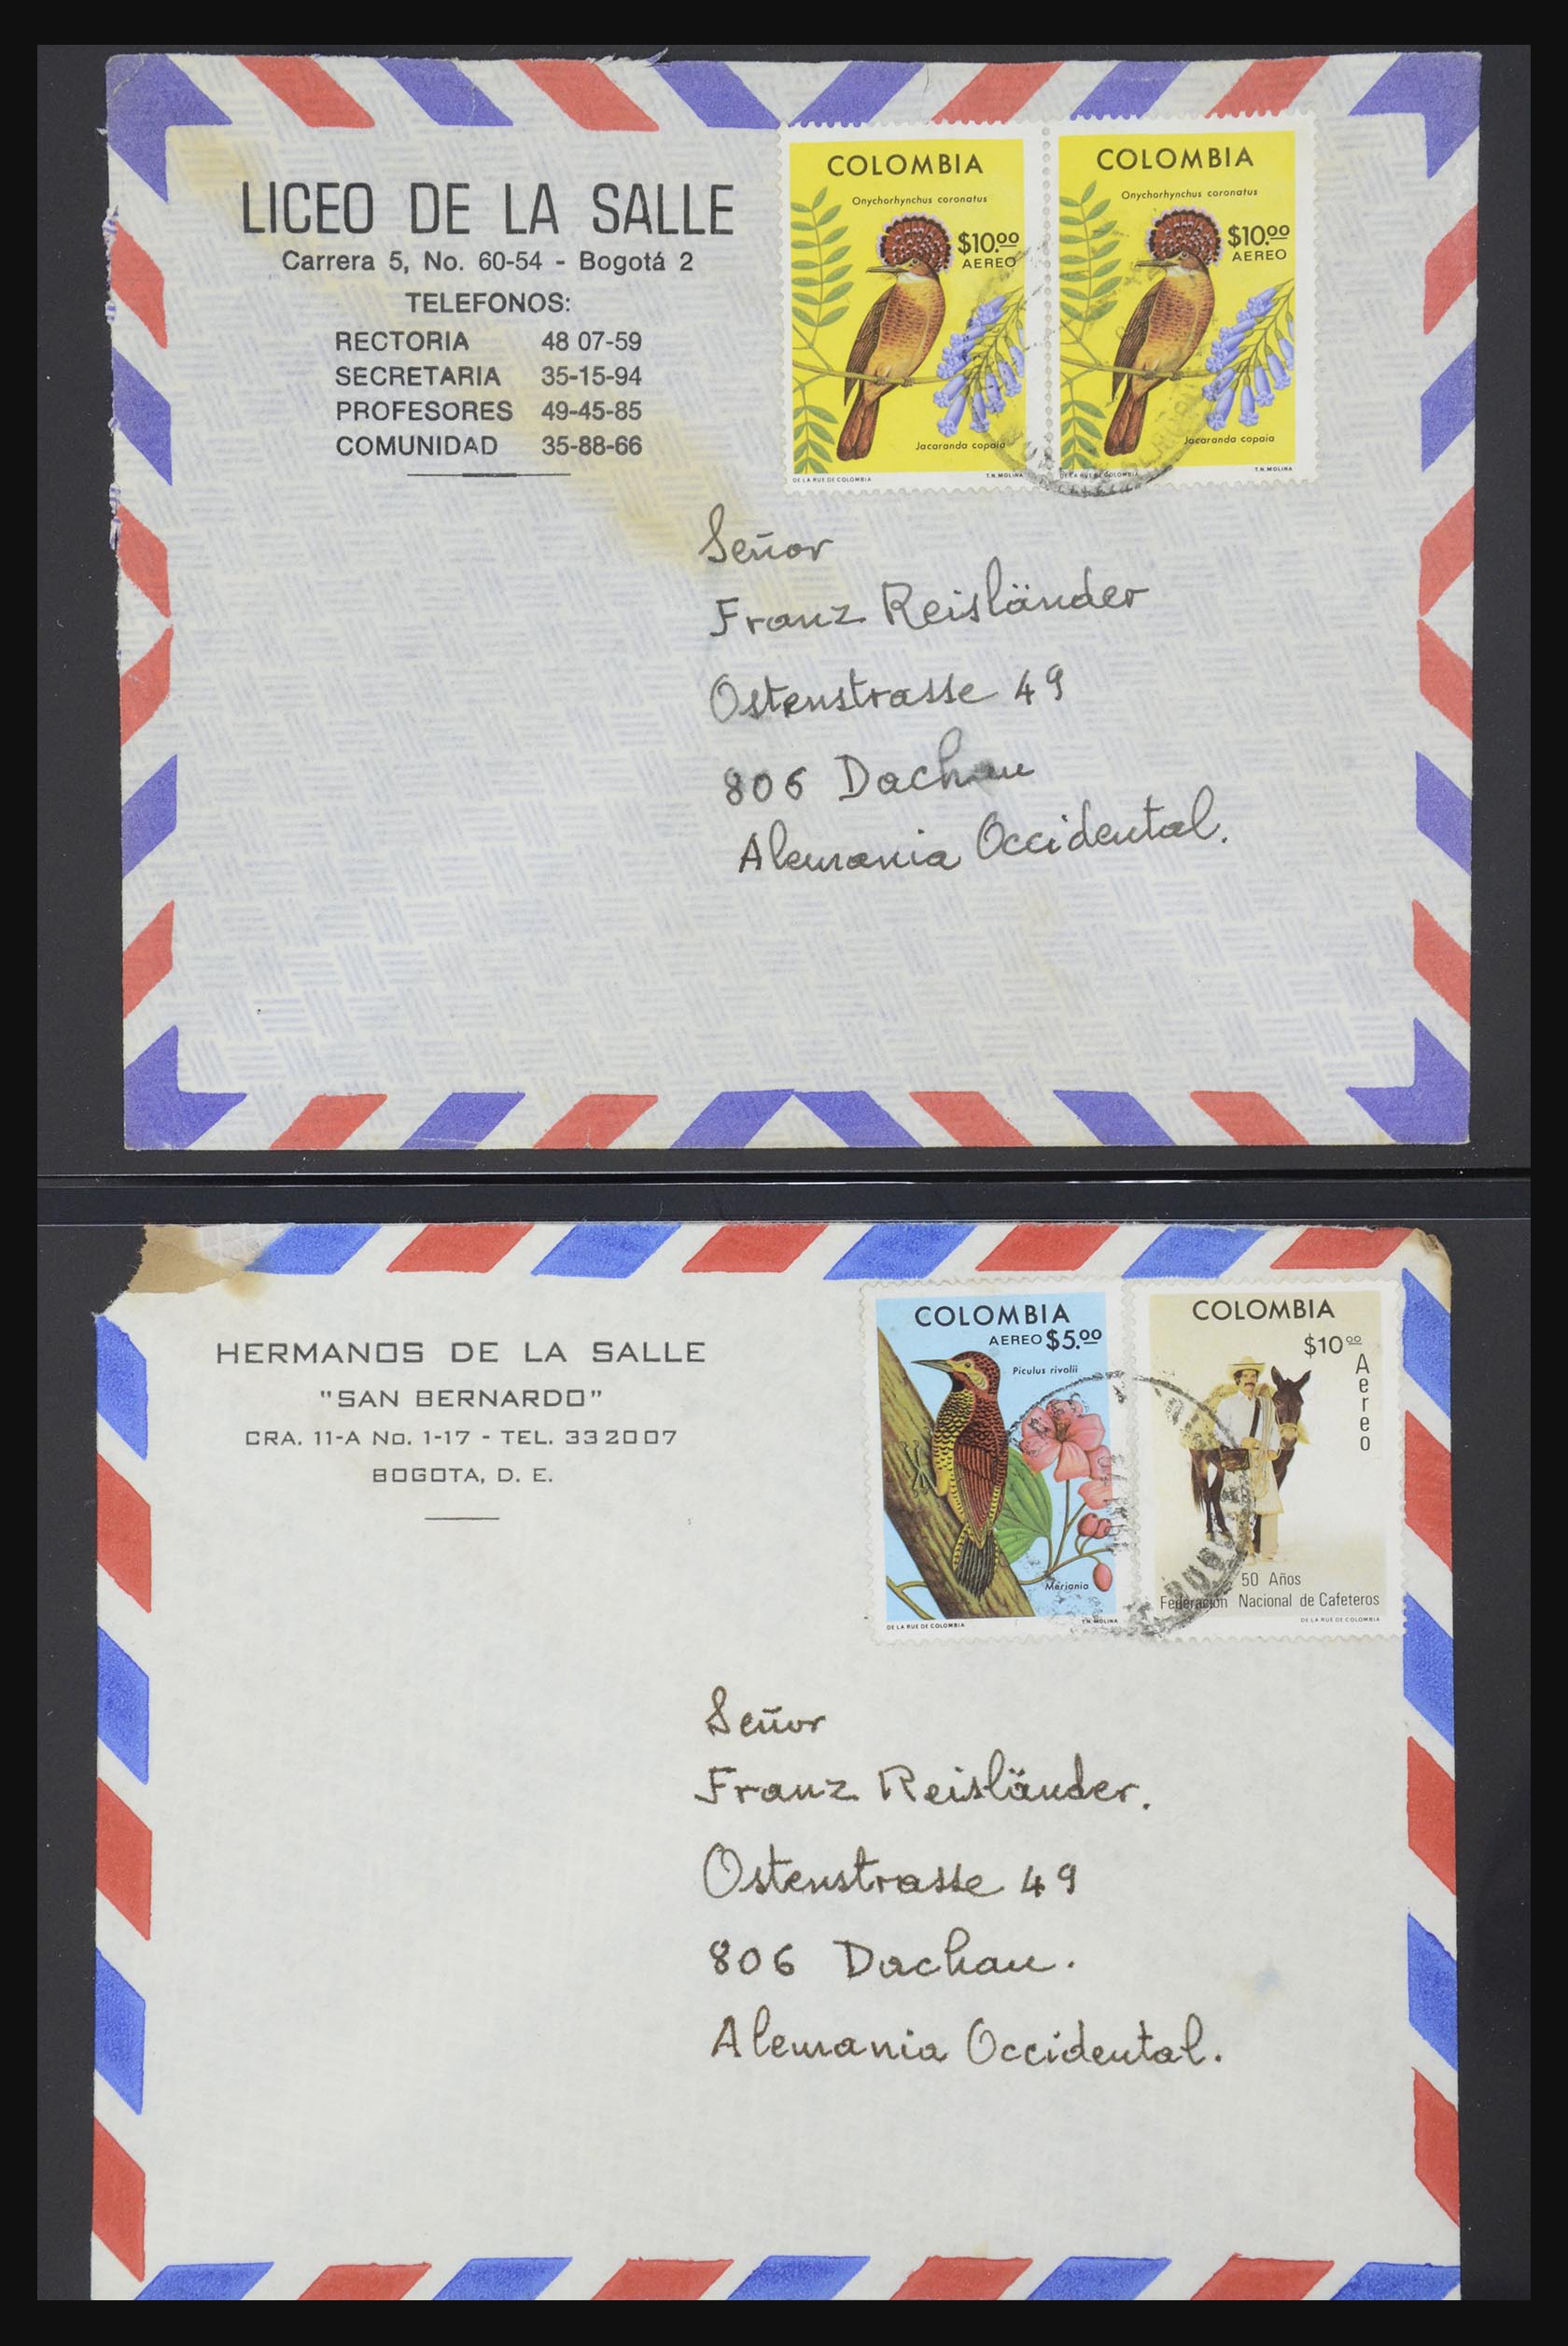 LICEO DE LA SALLE
Carrera 5, No. 60-54 - Bogotá 2
TELEFONOS:
RECTORIA 48 07-59
SECRETARIA 35-15-94
PROFESORES 49-45-85
COMUNIDAD 35-88-66
COLOMBIA
Onychorhynchus coronatus
$10.00
AEREO
Jacaranda copaia
DE LA RUE DE COLOMBIA T.N.MOLINA
COLOMBIA
Onychorhynchus coronatus
$10.00
AEREO
Jacaranda copaia
DE LA RUE DE COLOMBIA T.N.MOLINA
Señor
Franz Reisländer
Ostenstrasse 49
806 Dachau
Alemania Occidental.
HERMANOS DE LA SALLE
"SAN BERNARDO"
CRA. 11-A No. 1-17 - TEL. 332007
BOGOTA, D. E.
COLOMBIA
AEREO $5.00
Piculus rivolii
Meriania
DE LA RUE DE COLOMBIA T.N.MOLINA
COLOMBIA
$10.00
Aereo
50 Años
Federación Nacional de Cafeteros
DE LA RUE DE COLOMBIA
Señor
Franz Reisländer.
Ostenstrasse 49
806 Dachau.
Alemania Occidental.